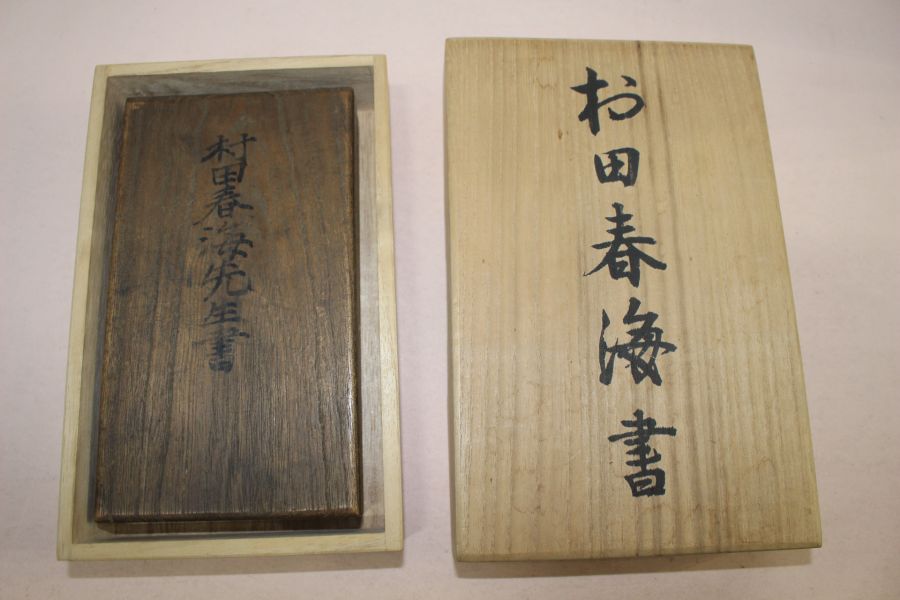 村田春海書
村田春海先生書